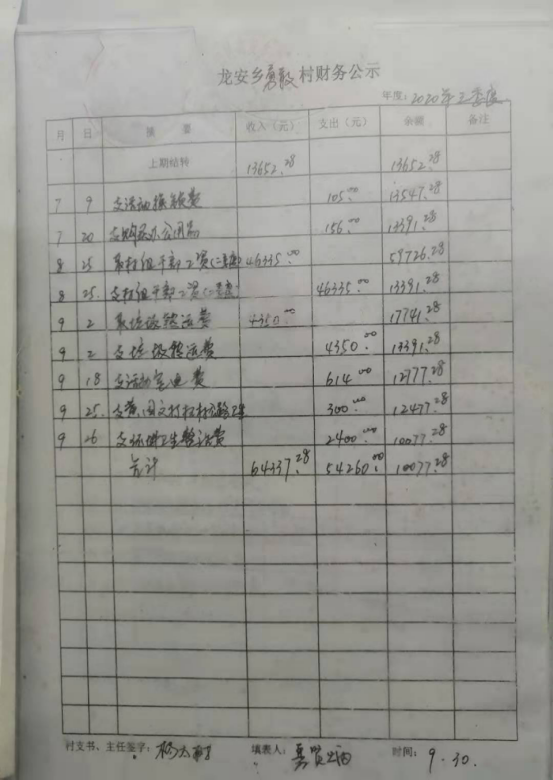 龙安乡勇敢村财务公示
年度：2020年三季度
月 日 摘要 收入（元） 支出（元） 余额 备注
上期结转 13652.28 13652.28
7 9 支活动报费 105.00 13547.28
7 20 支购买办公用品 156.00 13391.28
8 25 系村组干部工资（二季度） 46335.00 59726.28
8 25. 支村组干部工资（二季度） 46335.00 13391.28
9 2 系垃圾转运费 4350.00 17741.28
9 2 支垃圾转运费 4350.00 13391.28
9 18 支活动室电费 614.00 12777.28
9 25. 支黄国文打扫村公路卫生 300.00 12477.28
9 26 支环保卫生整治费 2400.00 10077.28
合计 64337.28 54260.00 10077.28
村支书、主任签字： 填表人： 时间：9.30.